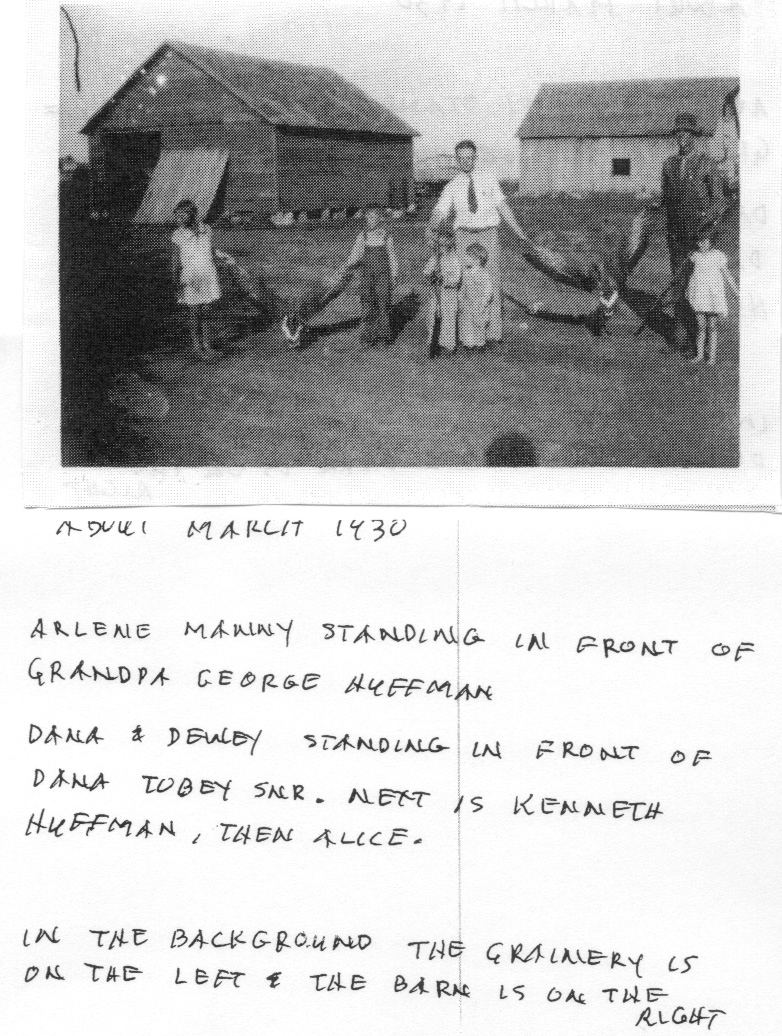 ABOUT MARCH 1930
ARLENE MANNY STANDING IN FRONT OF
GRANDPA GEORGE HUFFMAN
DANA & DEWEY STANDING IN FRONT OF
DANA TOBEY SNR. NEXT IS KENNETH
HUFFMAN, THEN ALICE.
IN THE BACKGROUND THE GRAINERY IS
ON THE LEFT & THE BARN IS ON THE
RIGHT